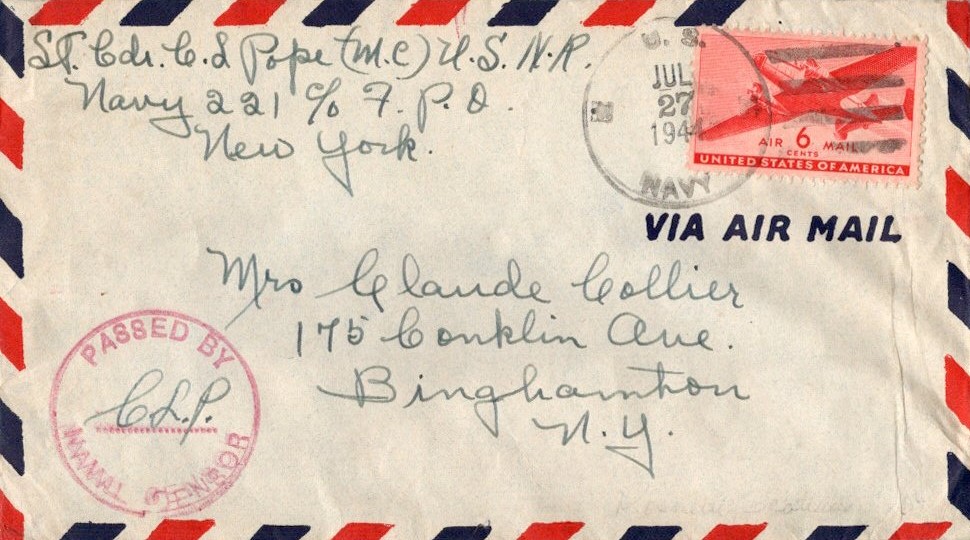 LT. Cdr. C. L Pope (M.C) U.S.N.R.
Navy 221 c/o F.P.O.
New York.
U. S.
JUL
27
1944
NAVY
AIR 6 MAIL
CENTS
UNITED STATES OF AMERICA
VIA AIR MAIL
Mrs Claude Collier
175 Conklin Ave.
Binghamton
N.Y.
PASSED BY
C.L.P.
NAVAL CENSOR